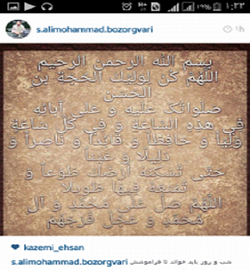 ۱۹% ۱:۲۳
s.alimohammad.bozorgvari
1h
بسم الله الرحمن الرحیم
اللهم کن لولیک الحجة بن
الحسن
صلواتک علیه و علی آبائه
فی هذه الساعة و فی کل ساعة
ولیا و حافظا و قائدا و ناصرا و
دلیلا و عینا
حتی تسکنه ارضک طوعا و
تمتعه فیها طویلا
اللهم صل علی محمد و آل
محمد و عجل فرجهم
kazemi_ehsan
s.alimohammad.bozorgvari شب و روز باید خواند تا فراموشش